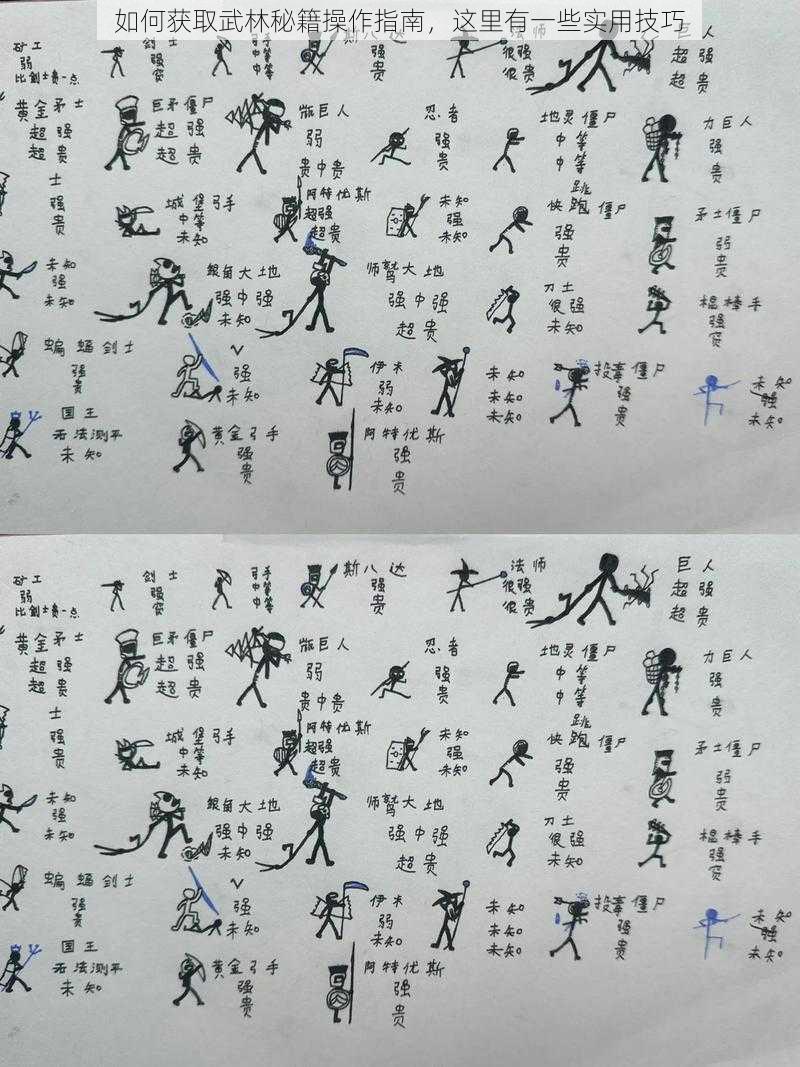 如何获取武林秘籍操作指南，这里有一些实用技巧
矿工
弱
比剑士贵一点
强
贵
弓手
中等
中等
斯八达
强
贵
法师
很强
很贵
巨人
超强
超贵
黄金矛士
超强
超贵
巨矛僵尸
超强
超贵
巨人
弱
贵中贵
忍者
强
贵
地灵僵尸
中等
中等
力巨人
强
贵
士
强
贵
城堡弓手
中等
未知
阿特优斯
超强
超贵
未知
强
未知
跳
快跑僵尸
强
贵
矛士僵尸
弱
贵
未知
强
未知
大地
强中强
未知
师鹫大地
强中强
超贵
刀土
很强
未知
棍棒手
强
贫
蝙蝠剑士
强
贵
V
强
未知
伊木
弱
未知
未知
未知
未知
投毒僵尸
强
贵
未知
强
未知
国王
无法测平
未知
黄金弓手
强
贵
阿特优斯
强
贵
矿工
弱
比剑士贵一点
剑士
强
贫
弓手
中等
中等
斯八达
强
贵
法师
很强
很贵
巨人
超强
超贵
黄金矛士
超强
超贵
巨矛僵尸
超强
超贵
巨人
弱
贵中贵
忍者
强
贵
地灵僵尸
中等
中等
力巨人
强
贵
士
强
贵
城堡弓手
中等
未知
阿特优斯
超强
超贵
未知
强
未知
跳
快跑僵尸
强
贵
矛士僵尸
弱
贵
未知
强
未知
大地
强中强
未知
师鹫大地
强中强
超贵
刀土
很强
未知
棍棒手
强
贫
蝙蝠剑士
强
贵
V
强
未知
伊木
弱
未知
未知
未知
未知
投毒僵尸
强
贵
未知
强
未知
国王
无法测平
未知
黄金弓手
强
贵
阿特优斯
强
贵